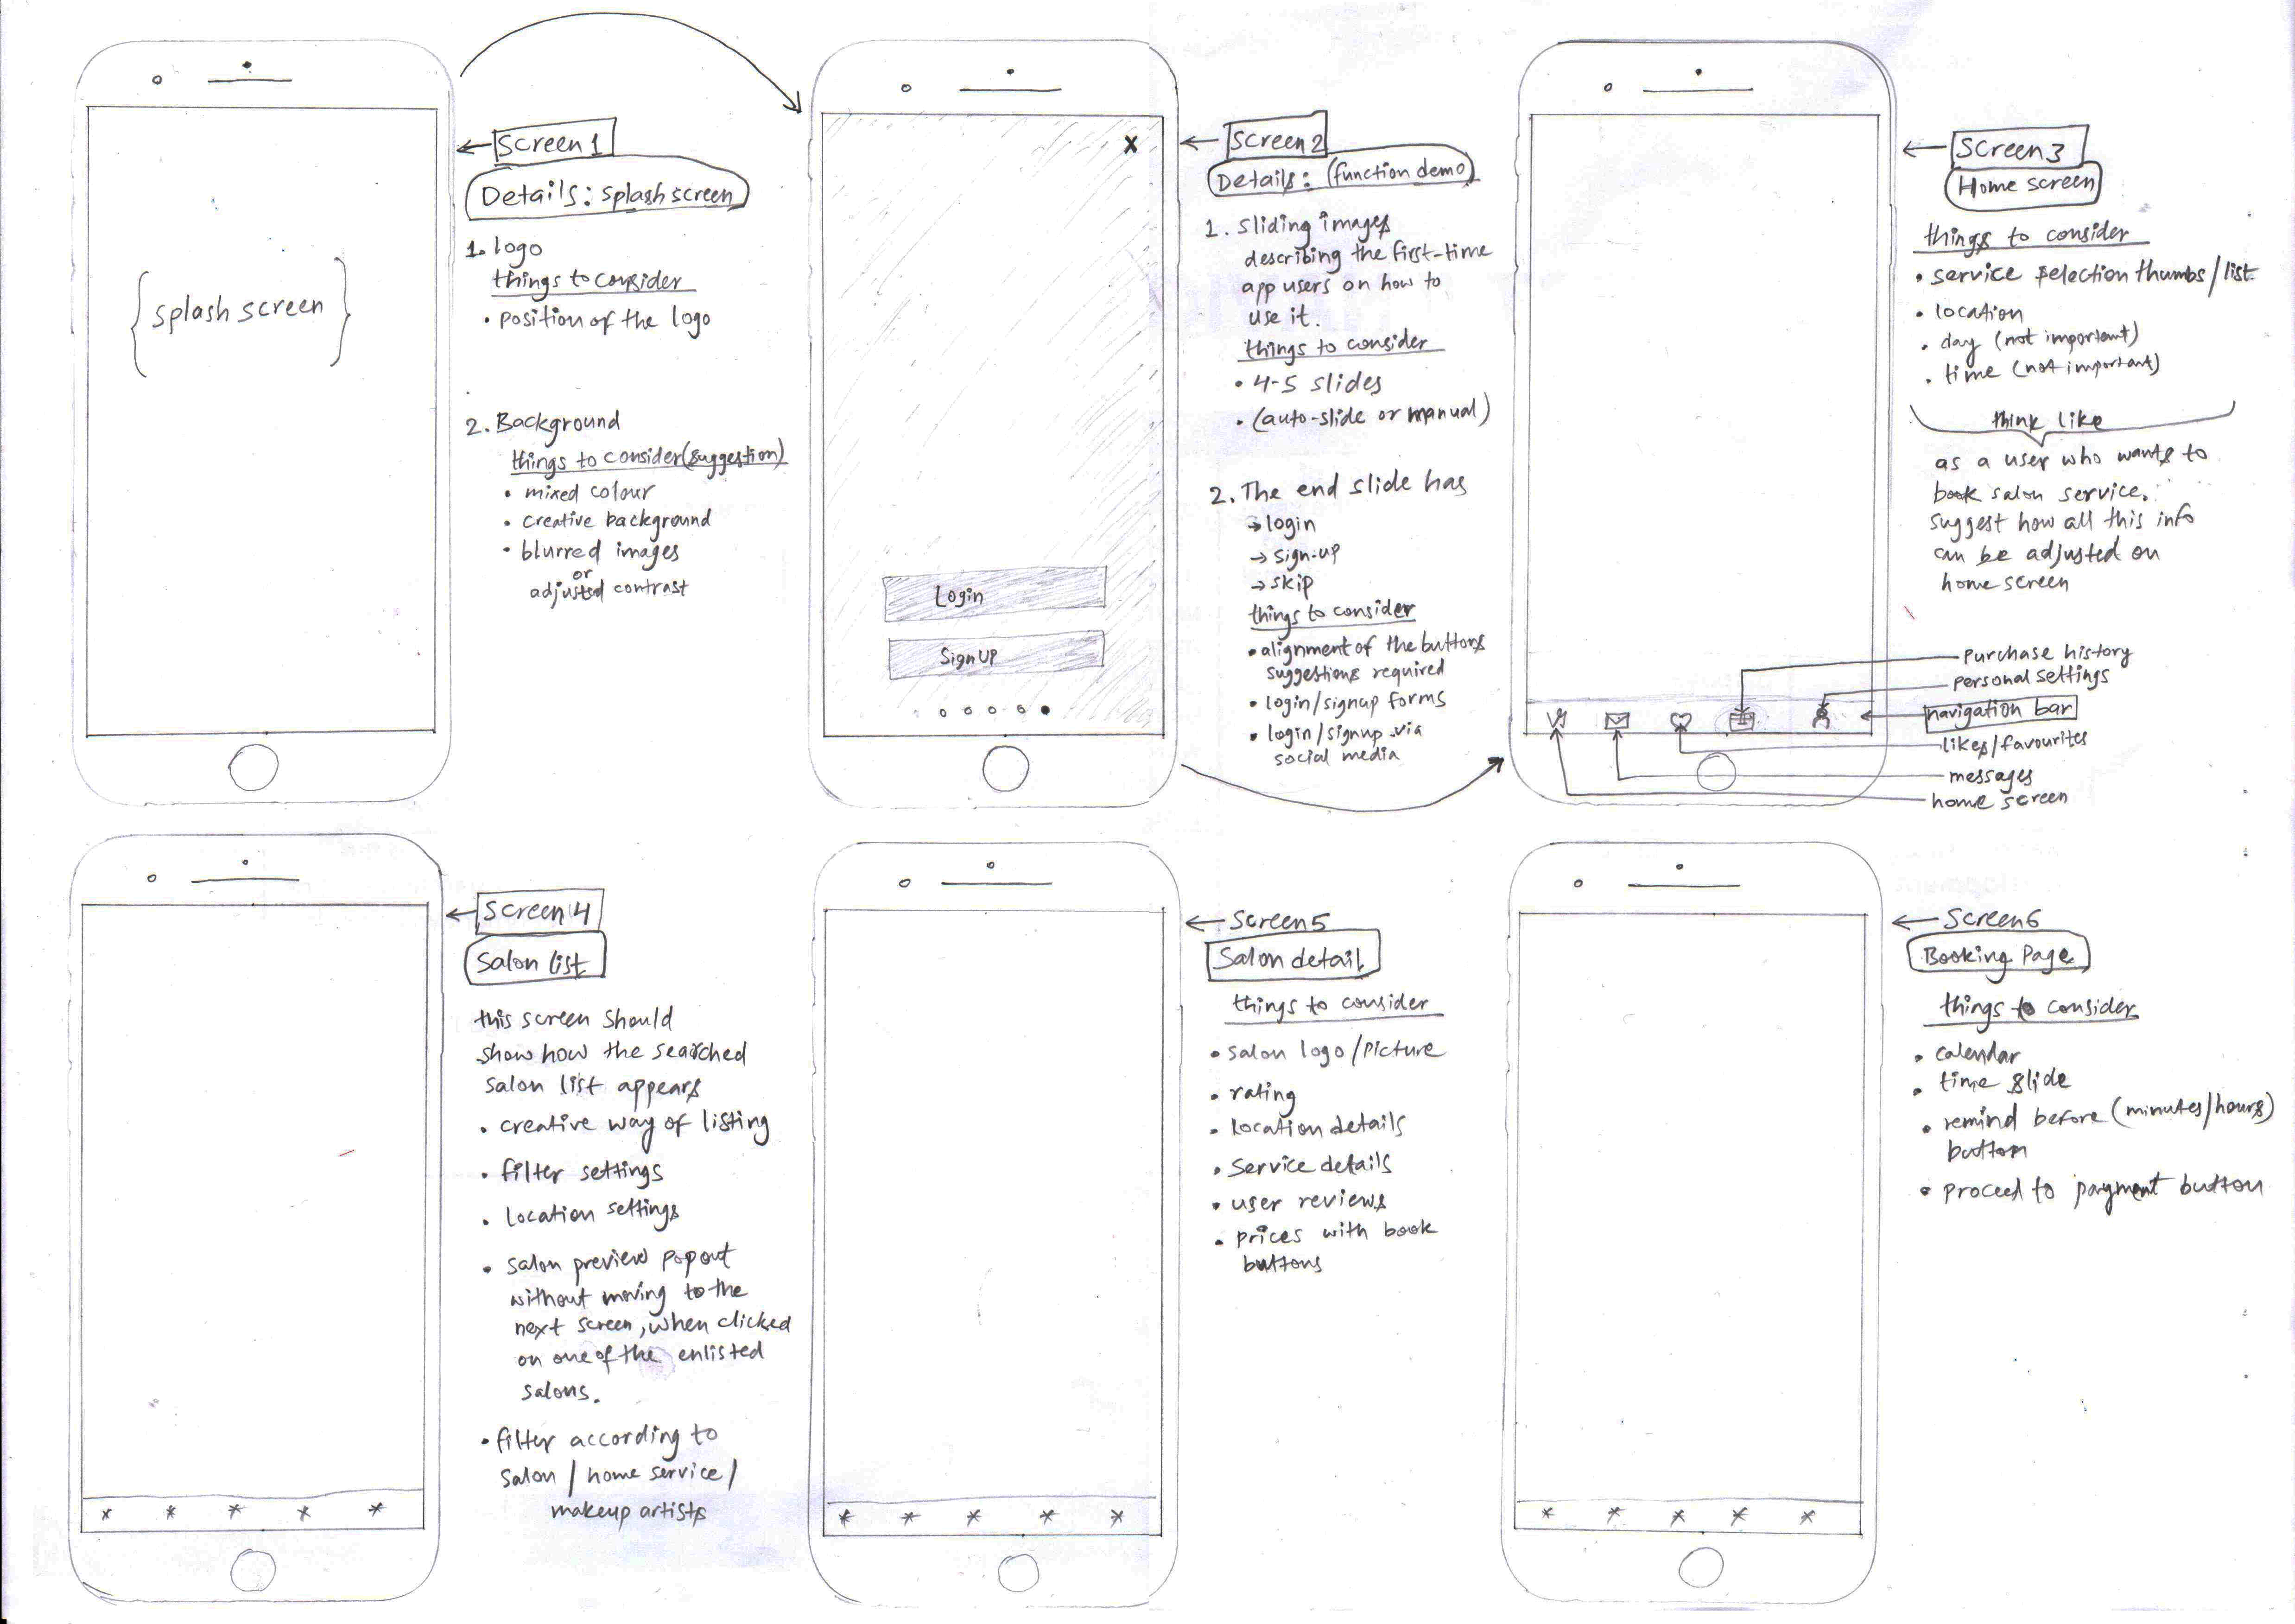 {splash screen}
Screen 1
Details: splash screen
1. logo
things to consider
• position of the logo
2. Background
things to consider (suggestion)
• mixed colour
• creative background
• blurred images
or
adjusted contrast
x
Login
SignUP
Screen 2
Details: (function demo)
1. Sliding images
describing the first-time
app users on how to
use it.
things to consider
• 4-5 slides
• (auto-slide or manual)
2. The end slide has
→ login
→ sign-up
→ skip
things to consider
• alignment of the buttons
suggestions required
• login/signup forms
• login/signup via
social media
Screen 3
Home screen
things to consider
• service selection thumbs/list
• location
• day (not important)
• time (not important)
think like
as a user who wants to
book salon service.
suggest how all this info
can be adjusted on
home screen
purchase history
personal settings
navigation bar
likes/favourites
messages
home screen
Screen 4
Salon list
this screen should
show how the searched
salon list appears
• creative way of listing
• filter settings
• location settings
• salon preview popout
without moving to the
next screen, when clicked
on one of the enlisted
salons.
• filter according to
salon / home service /
makeup artists
Screen 5
Salon detail
things to consider
• salon logo/picture
• rating
• location details
• service details
• user reviews
• prices with book
buttons
Screen 6
Booking Page
things to consider
• calendar
• time slide
• remind before (minutes/hours)
button
• proceed to payment button